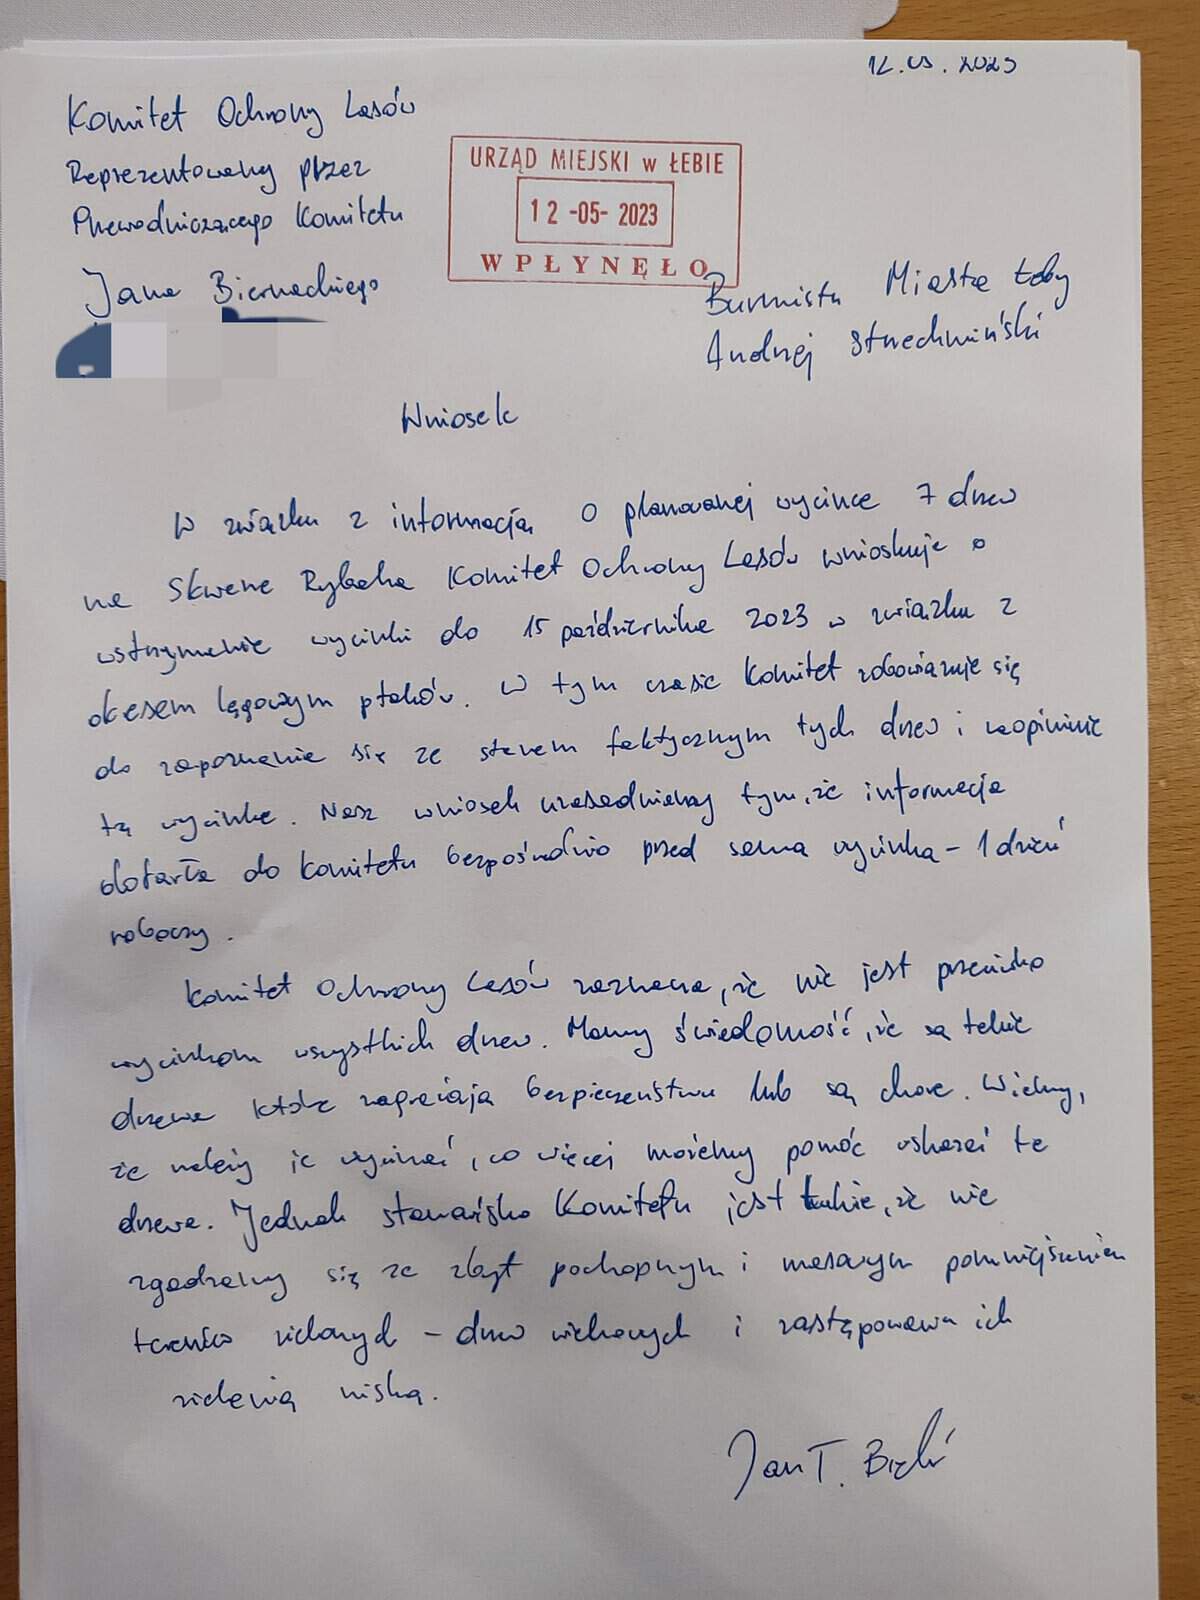 12.05.2023
Komitet Ochrony Lasów
Reprezentowany przez
Przewodniczącego Komitetu
Jana Biernackiego
URZĄD MIEJSKI w ŁEBIE
12 -05- 2023
WPŁYNĘŁO
Burmistrz Miasta Łeby
Andrzej Strzechmiński
Wniosek
W związku z informacją o planowanej wycince 7 drzew
na Skwerze Rybaka Komitet Ochrony Lasów wnioskuje o
wstrzymanie wycinki do 15 października 2023 w związku z
okesem lęgowym ptaków. W tym czasie Komitet zobowiązuje się
do zapoznania się ze stanem faktycznym tych drzew i zaopiniuje
tą wycinkę. Nasz wniosek uzasadniamy tym, że informacja
dotarła do Komitetu bezpośrednio przed samą wycinką - 1 dzień
roboczy.
Komitet Ochrony Lasów zaznacza, że nie jest przeciwko
wycinkom wszystkich drzew. Mamy świadomość, że są takie
drzewa które zagrażają bezpieczeństwu lub są chore. Wiemy,
że należy je wycinać, co więcej możemy pomóc wskazać te
drzewa. Jednak stanowisko Komitetu jest takie, że nie
zgadzamy się ze zbyt pochopnym i masowym pomniejszaniem
terenów zielonych - drzew wiekowych i zastępowania ich
zielenią niską.
Jan T.